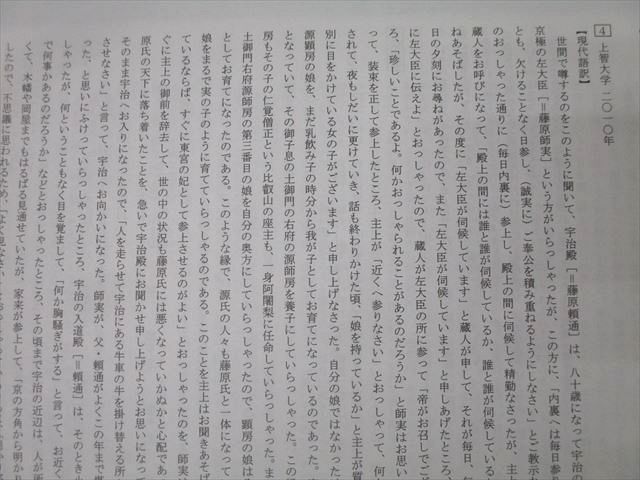 4 上智大学 二〇一〇年
【現代語訳】
世間で噂するのをこのように聞いて、宇治殿〔=藤原頼通〕は、八十歳になって宇治の
京極の左大臣〔=藤原師実〕という方がいらっしゃったが、この方に、「内裏へは毎日参り
とも、欠けることなく日参し、(誠実に)ご奉公を積み重ねるようにしなさい」とご教示な
のおっしゃった通りに(毎日内裏に)参上し、殿上の間に伺候して精勤なさったが、主上
蔵人をお呼びになって、「殿上の間には誰と誰が伺候しているか、誰と誰が伺候している
ねあそばしたが、その度に「左大臣が伺候しています」と蔵人が申して、それが毎日、毎
日の夕刻にお尋ねがあったので、また「左大臣が伺候しています」と申しあげたところ、
に左大臣に伝えよ」とおっしゃったので、蔵人が左大臣の所に参って「帝がお召しでござ
ろ、「珍しいことであるよ。何かおっしゃられることがあるのだろうか」と師実はお思い
って、装束を正して参上したところ、主上が「近くへ参りなさい」とおっしゃって、何
されて、夜もしだいに更けていき、話も終わりかけた頃、「娘を持っているか」と主上が質
に目をかけている女の子がございます」と申し上げなさった。自分の娘ではなかった
源顕房の娘を、まだ乳飲み子の時分から我が子としてお育てになっているのであった。
となっていて、その御子息の土御門の右府の源師房を養子にしていらっしゃった。この
房もその子の仁覚僧正という比叡山の座主も、一身阿闍梨に任命していらっしゃった。
土御門右府源師房の第三番目の娘を自分の奥方にしていらっしゃったので、顕房の娘は
としてお育てになったのである。このような縁で、源氏の人々も藤原氏と一体になって
娘をまるで実の子のように育てていらっしゃるのである。このことを主上はお聞きあそば
ているならば、すぐに東宮の妃として参上させるのがよい」とおっしゃったのを、師実は
ぐに主上の御前を辞去して、世の中の状況も藤原氏には悪くなっていかぬかと心配であ
原氏の天下に落ち着いたことを、急いで宇治殿にお聞かせ申し上げようとお思いになって
そのまま宇治へお入りになったので、「人を走らせて宇治にある牛車の牛を掛け替える所
させなさい」と言って、宇治へお向かいになった。師実が、父・頼通がよくこの年まで
った、と思いにふけっていらっしゃったところ、宇治の入道殿〔=頼通〕は、そのとき
しゃったが、何ということもなく目を覚まして、「何か胸騒ぎがする」と言って、お近く
で何事かあるのだろうか」などとおっしゃったところ、その頃まで宇治の近辺は、人が
くて、木幡や岡屋までもはるばる見通せていたが、家来が参上して、「京の方角から明かり
したので、不思議に思われるため、「よく見なさい」と